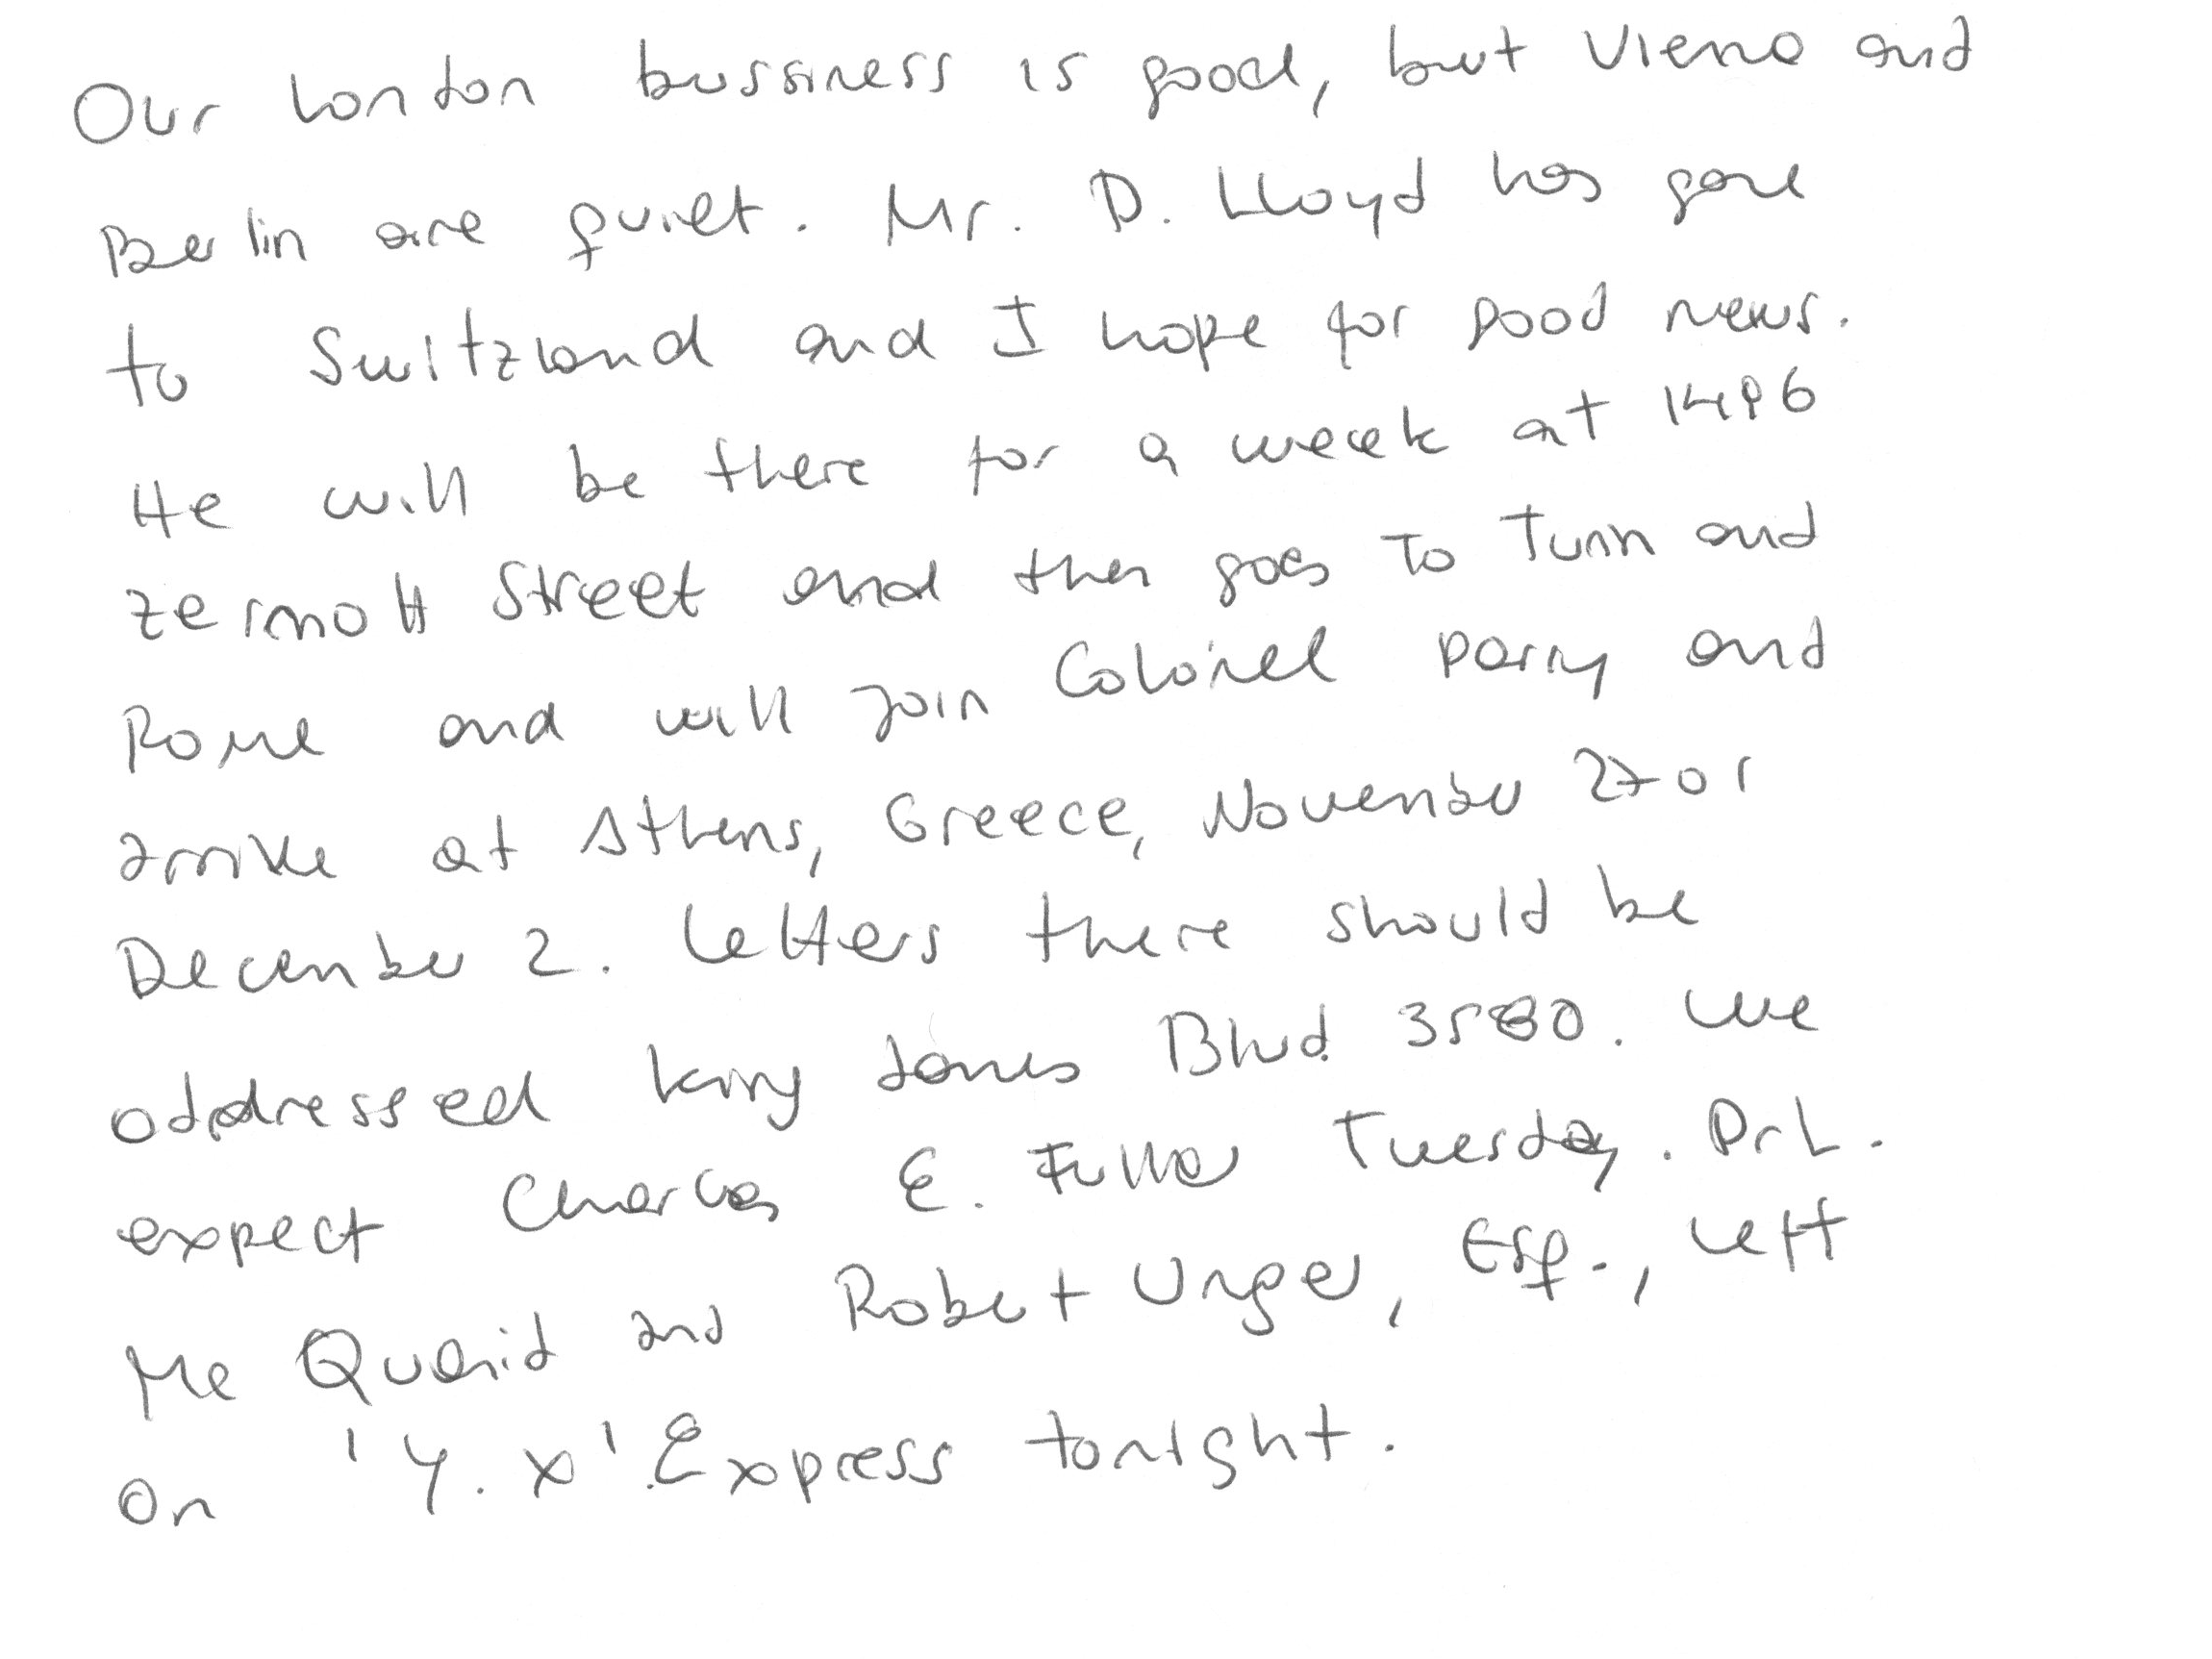 Our London bussiness is good, but Viena and
Berlin are quiet. Mr. D. Lloyd has gone
to Switzland and I hope for good news.
He will be there for a week at 1496
Zermott Street and then goes to Turin and
Rome and will join Colonel Parry and
arrive at Athens, Greece, November 27 or
December 2. Letters there should be
addressed King James Blvd. 3580. We
expect Charles E. Fuller Tuesday. Dr L.
Mc Quaid and Robert Unger, Esq., left
on 'Y. X' Express tonight.